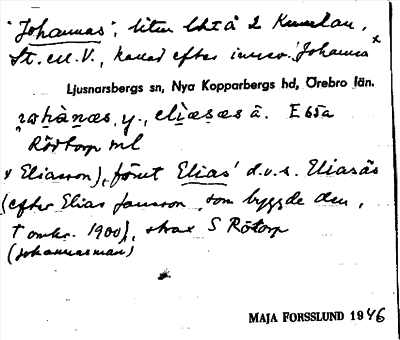 "Johannas", liten lht å 2 Kumlan,
St. ell. V., kallad efter innev. Johanna x
Ljusnarsbergs sn, Nya Kopparbergs hd, Örebro län.
y., elìæsæs å. E65a
Rörtorp ml
x Eliasson), förut Elias' d.v.s. Eliasäs
(efter Elias Jansson, som byggde den,
† omkr. 1900), strax S Rötorp
(Johannasman)
MAJA FORSSLUND 1946